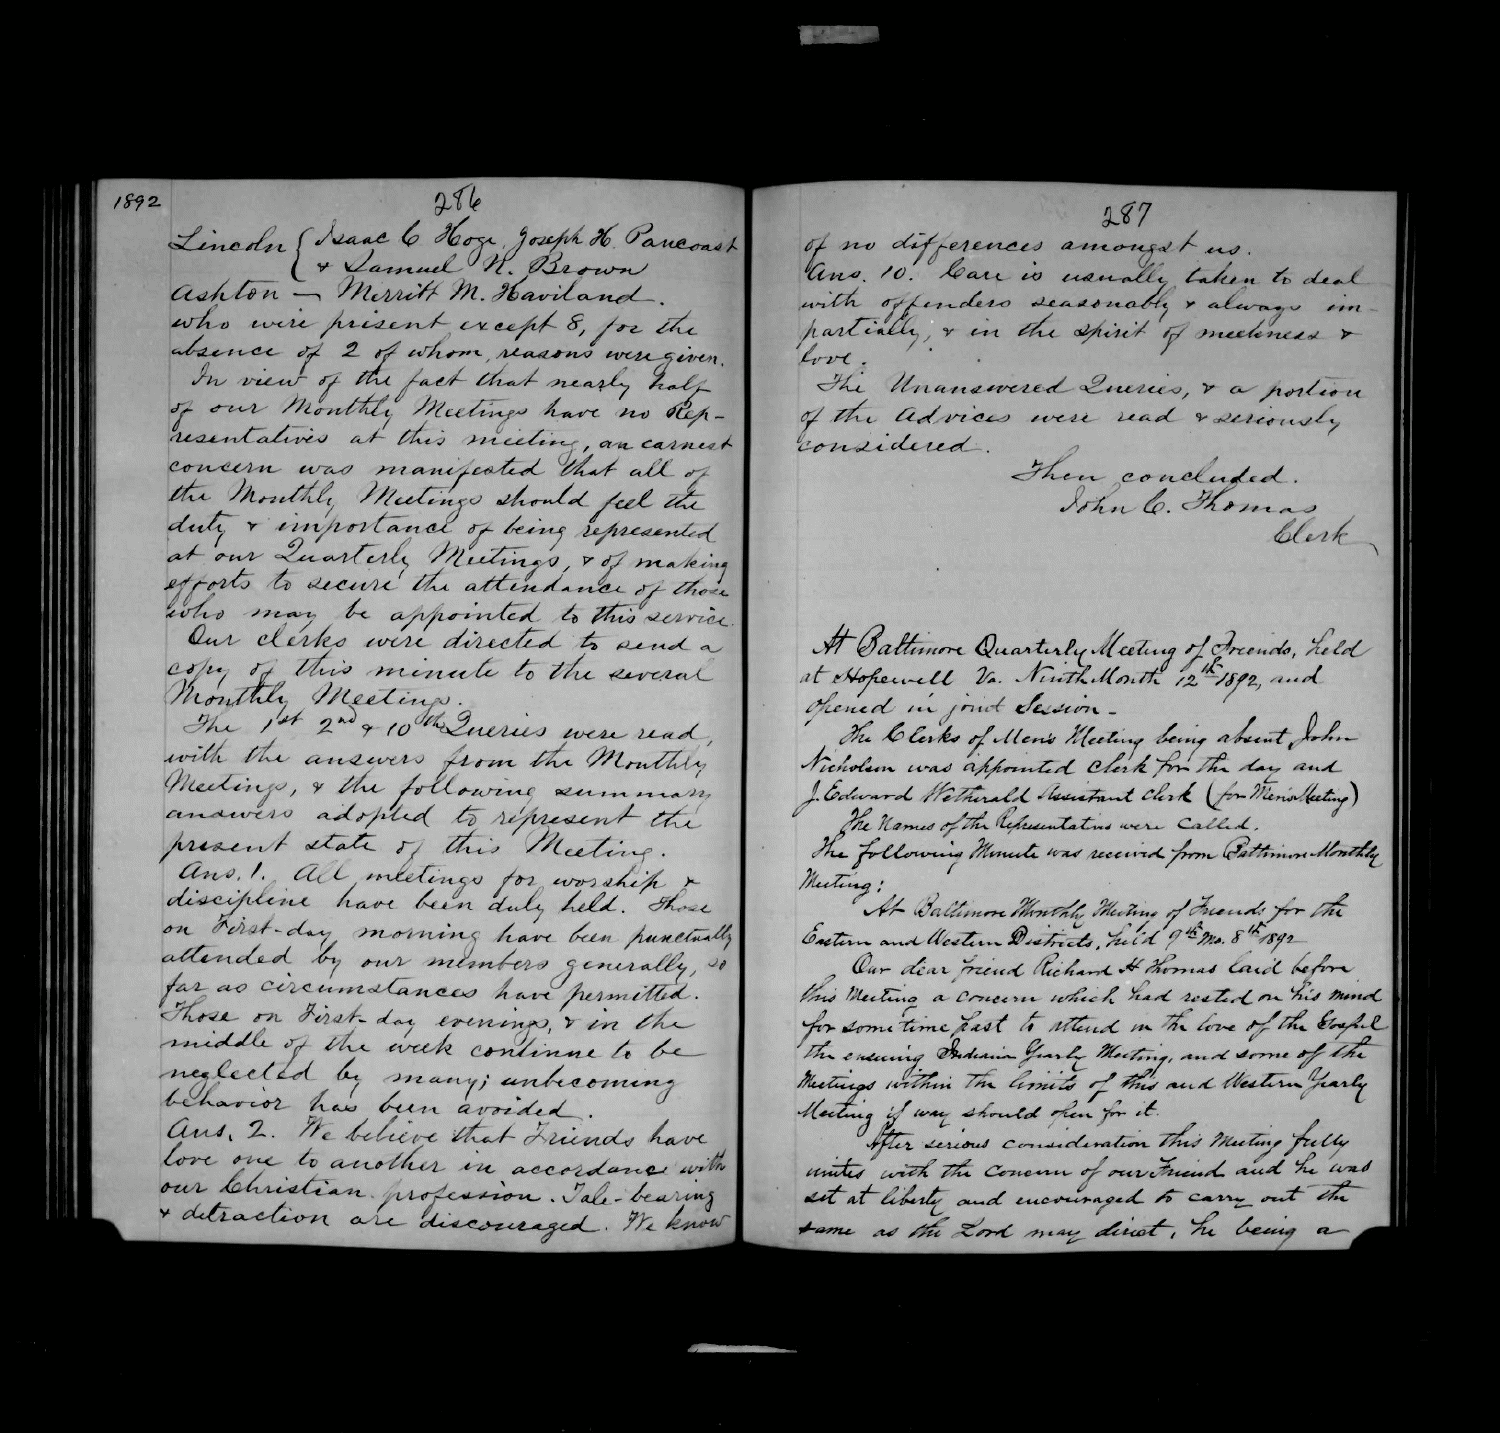 1892
286
Lincoln { Isaac C Hoge, Joseph H. Pancoast
& Samuel N. Brown
Ashton — Merritt M. Haviland.
who were present except 8, for the
absence of 2 of whom, reasons were given.
In view of the fact that nearly half
of our Monthly Meetings have no Rep-
resentatives at this meeting, an earnest
concern was manifested that all of
the Monthly Meetings should feel the
duty & importance of being represented
at our Quarterly Meetings, & of making
efforts to secure the attendance of those
who may be appointed to this service.
Our clerks were directed to send a
copy of this minute to the several
Monthly Meetings.
The 1st 2nd & 10th Queries were read,
with the answers from the Monthly
Meetings, & the following summary
answers adopted to represent the
present state of this Meeting.
Ans. 1. All meetings for worship &
discipline have been duly held. Those
on First-day morning have been punctually
attended by our members generally, so
far as circumstances have permitted.
Those on First-day evenings, & in the
middle of the week continue to be
neglected by many; unbecoming
behavior has been avoided.
Ans. 2. We believe that Friends have
love one to another in accordance with
our Christian profession. Tale-bearing
& detraction are discouraged. We know
287
of no differences amongst us.
Ans. 10. Care is usually taken to deal
with offenders seasonably & always im-
partially, & in the spirit of meekness &
love.
The Unanswered Queries, & a portion
of the Advices were read & seriously
considered.
Then concluded.
John C. Thomas
Clerk
At Baltimore Quarterly Meeting of Friends, held
at Hopewell Va. Ninth Month 12th 1892, and
opened in joint Session -
The Clerks of Men's Meeting being absent, John
Nicholson was appointed Clerk for the day and
J. Edward Wetherald Assistant Clerk (for Men's Meeting)
The Names of the Representatives were called.
The following Minute was received from Baltimore Monthly
Meeting:
At Baltimore Monthly Meeting of Friends for the
Eastern and Western Districts, held 9th Mo. 8th 1892
Our dear friend Richard H Thomas laid before
this Meeting a concern which had rested on his mind
for some time past to attend in the love of the Gospel
the ensuing Indiana Yearly Meeting, and some of the
Meetings within the limits of this and Western Yearly
Meeting if way should open for it.
After serious consideration this Meeting fully
unites with the concern of our Friend and he was
set at liberty and encouraged to carry out the
same as the Lord may direct, he being a